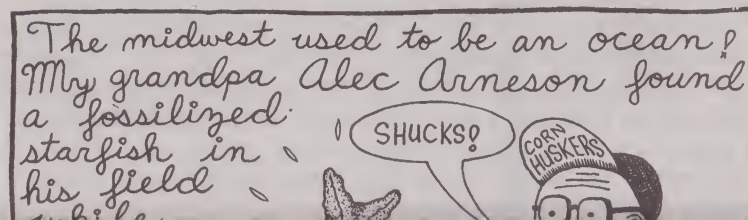 The midwest used to be an ocean!
My grandpa Alec Arneson found
a fossilized
starfish in
his field
while
SHUCKS!
CORN
HUSKERS